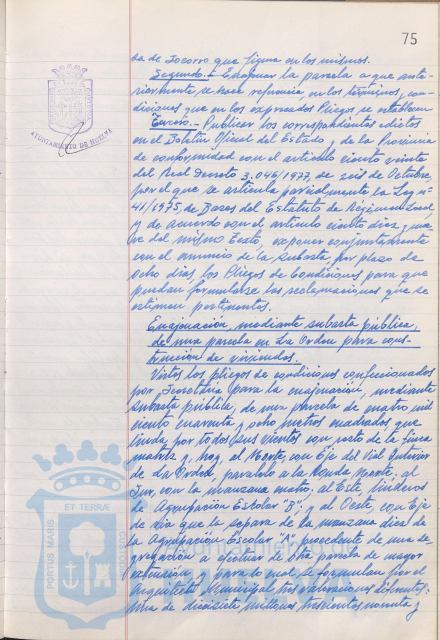 75
ba de Socorro que figura en los mismos.
Segundo.- Enajenar la parcela a que ante-
riormente se hace referencia, en los términos, con-
diciones que en los expresados Pliegos se establecen
Tercero.- Publicar los correspondientes edictos
en el Boletín Oficial del Estado y de la Provincia
de conformidad con el artículo ciento veinte
del Real Decreto 3.046/1977, de seis de Octubre,
por el que se articula parcialmente la Ley nº
41/1975, de Bases del Estatuto de Régimen Local,
y de acuerdo con el artículo ciento diez y nue-
ve del mismo Texto, exponer conjuntamente
con el anuncio de la subasta, por plazo de
ocho días, los Pliegos de Condiciones para que
puedan formularse las reclamaciones que se
estimen pertinentes.
Enajenación, mediante subasta pública,
de una parcela en La Orden para cons-
trucción de viviendas.
Vistos los pliegos de condiciones confeccionados
por Secretaría para la enajenación, mediante
subasta pública, de una parcela de cuatro mil
ciento cuarenta y ocho metros cuadrados que
linda por todos sus vientos con resto de la finca
matriz y, hoy, al Norte, con Eje del Vial Interior
de La Orden, paralelo a la Ronda Norte, al
Sur, con la manzana cuatro, al Este, linderos
de Agrupación Escolar "B", y al Oeste, con Eje
de vía que la separa de la manzana diez de
la Agrupación Escolar "A", procedente de una se-
gregación a efectuar de otra parcela de mayor
extensión y para lo cual se formulan por el
Arquitecto Municipal tres valoraciones diferentes:
una de diecisiete millones trescientos noventa y
AYUNTAMIENTO DE HUELVA
PORTUS MARIS
ET TERRAE
CUSTODIA
Ayuntamiento